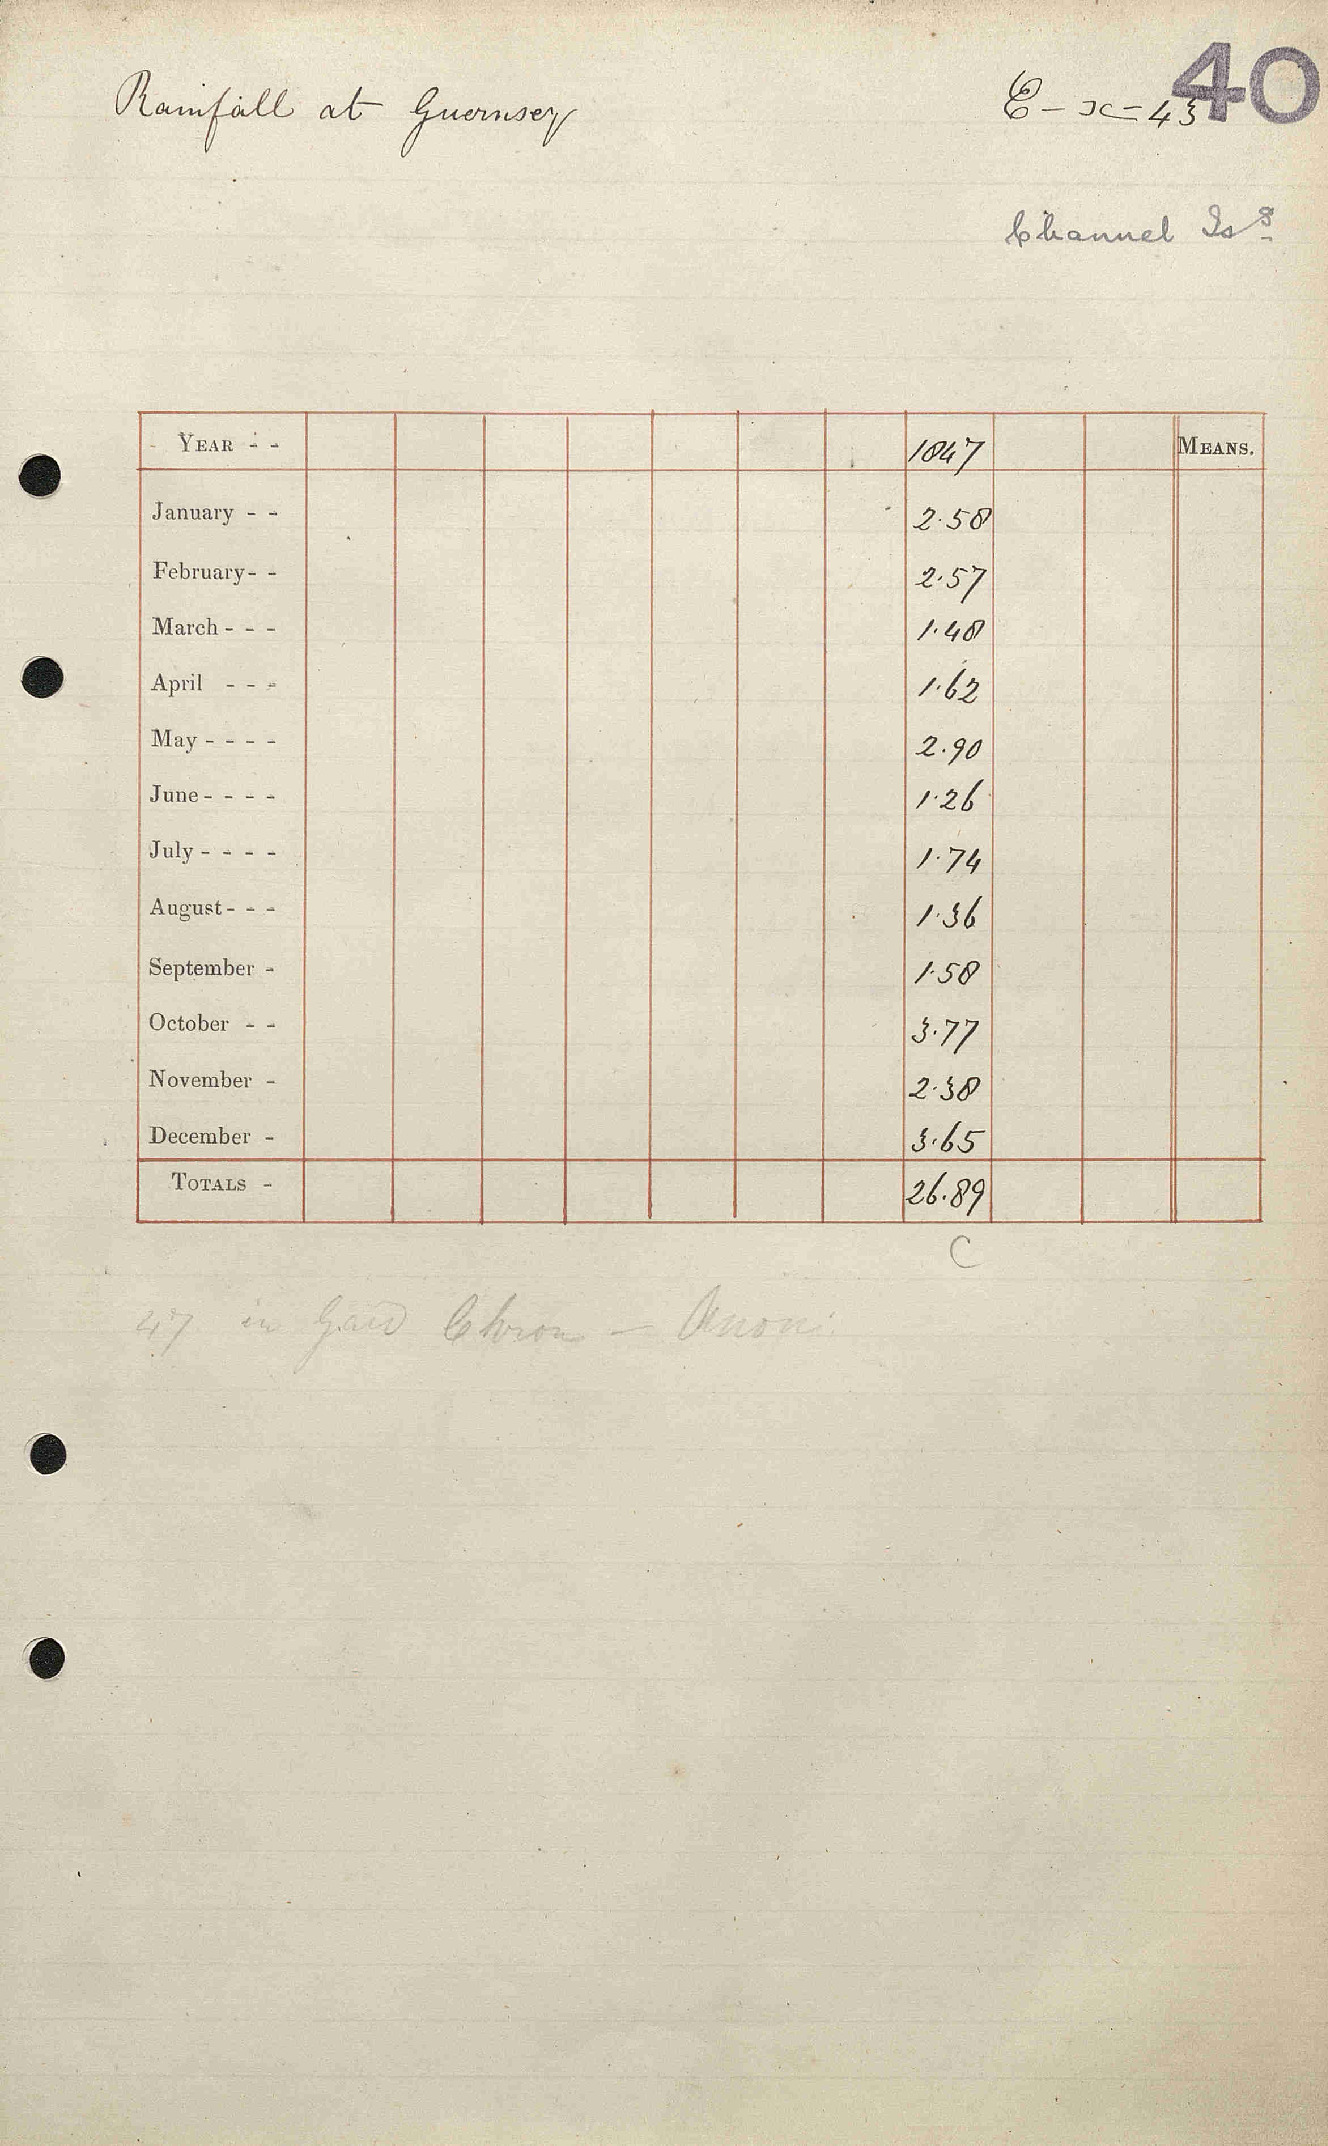 Rainfall at Guernsey
C - x - 43
40
Channel Is.
YEAR - - 1847 MEANS.
January - - 2.58
February - - 2.57
March - - - 1.48
April - - - 1.62
May - - - - 2.90
June - - - - 1.26
July - - - - 1.74
August - - - 1.36
September - 1.58
October - - 3.77
November - 2.38
December - 3.65
TOTALS - 26.89
C
47 in Gard Chron - Anon.